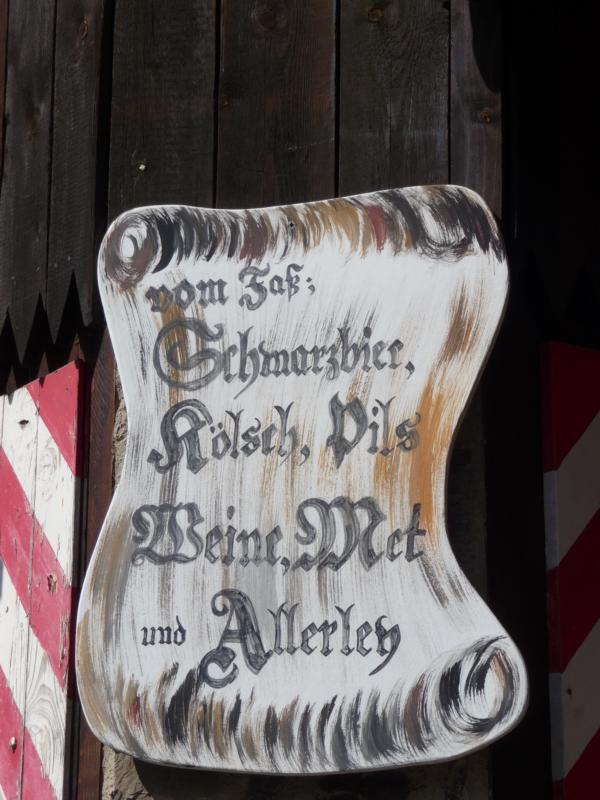 vom Faß:
Schwarzbier,
Kölsch, Pils
Weine, Met
und Allerley